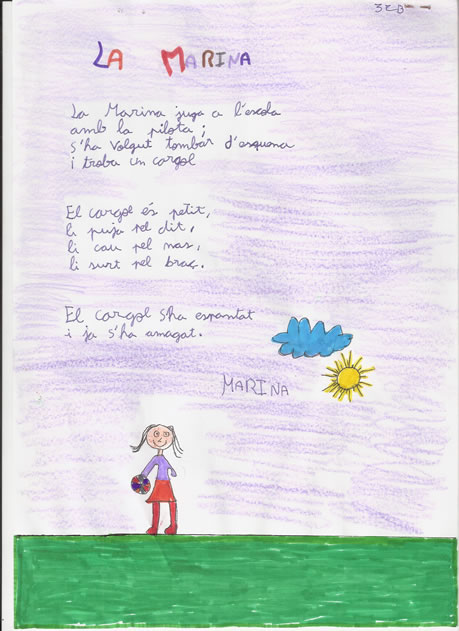 3r B
LA MARINA
La Marina juga a l'escola
amb la pilota;
s'ha volgut tombar d'esquena
i troba un cargol
El cargol és petit,
li puja pel dit,
li cau pel nas,
li surt pel braç.
El cargol s'ha espantat
i ja s'ha amagat.
MARINA